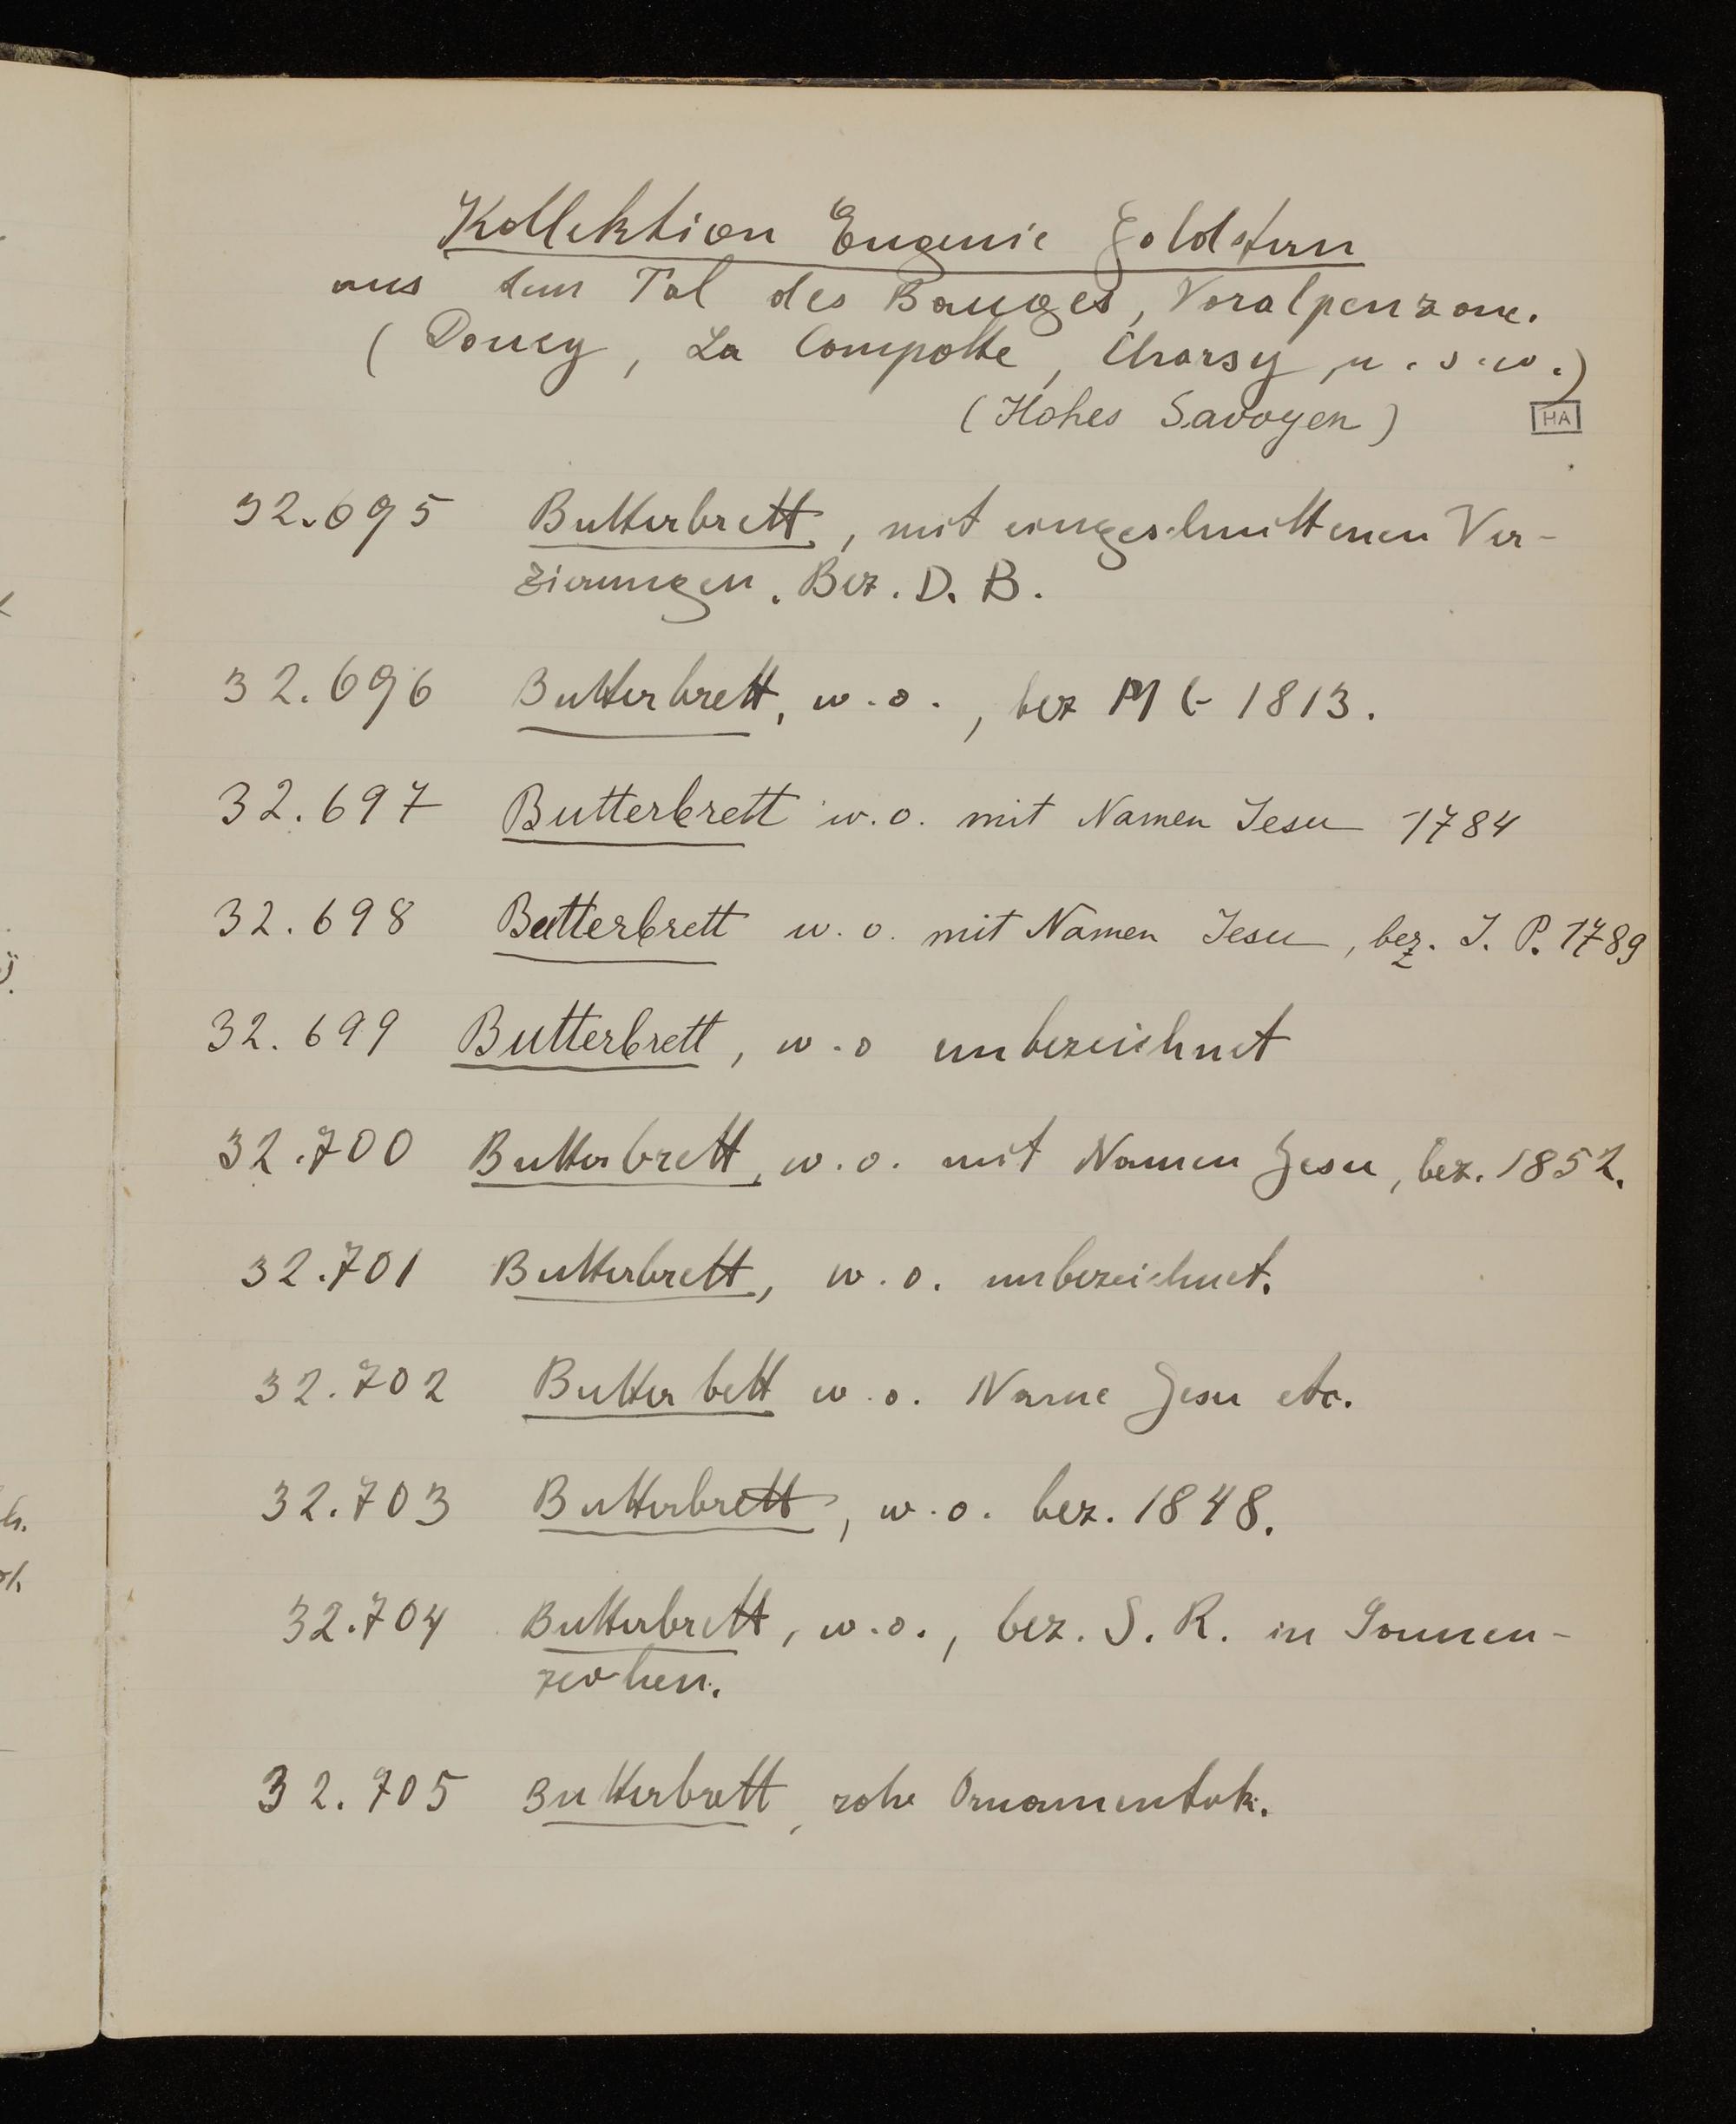 Kollektion Eugenie Goldstern
aus dem Tal des Bauges, Voralpenzone.
(Doucy, La Compotte, Charsy, u.s.w.)
(Hohes Savoyen) HA
32.695 Butterbrett, mit eingeschnittenen Ver-
zierungen. Bez. D. B.
32.696 Butterbrett, w.o., bez M C- 1813.
32.697 Butterbrett w.o. mit Namen Jesu 1784
32.698 Butterbrett w.o. mit Namen Jesu, bez. J. P. 1789
32.699 Butterbrett, w.o unbezeichnet
32.700 Butterbrett, w.o. mit Namen Jesu, bez. 1852.
32.701 Butterbrett, w.o. unbezeichnet.
32.702 Butterbett w.o. Name Jesu etc.
32.703 Butterbrett, w.o. bez. 1848.
32.704 Butterbrett, w.o., bez. S. R. in Sonnen-
zeichen.
32.705 Butterbrett, rohe Ornamentik.